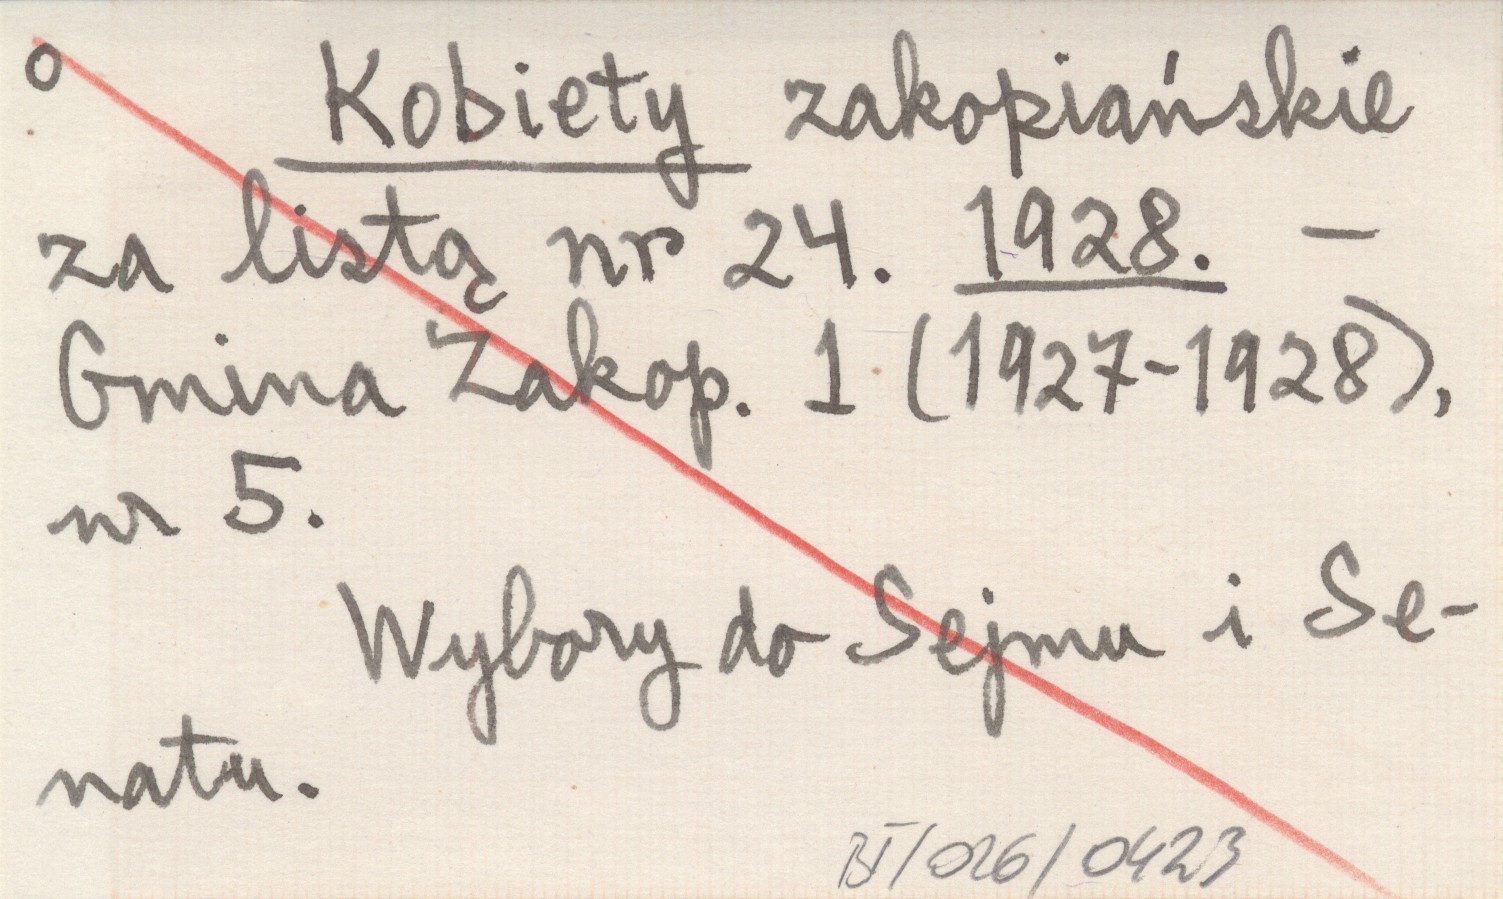 o Kobiety zakopiańskie
za listą nr 24. 1928. –
Gmina Zakop. 1 (1927-1928),
nr 5.
Wybory do Sejmu i Se-
natu.
BJ/026/0423